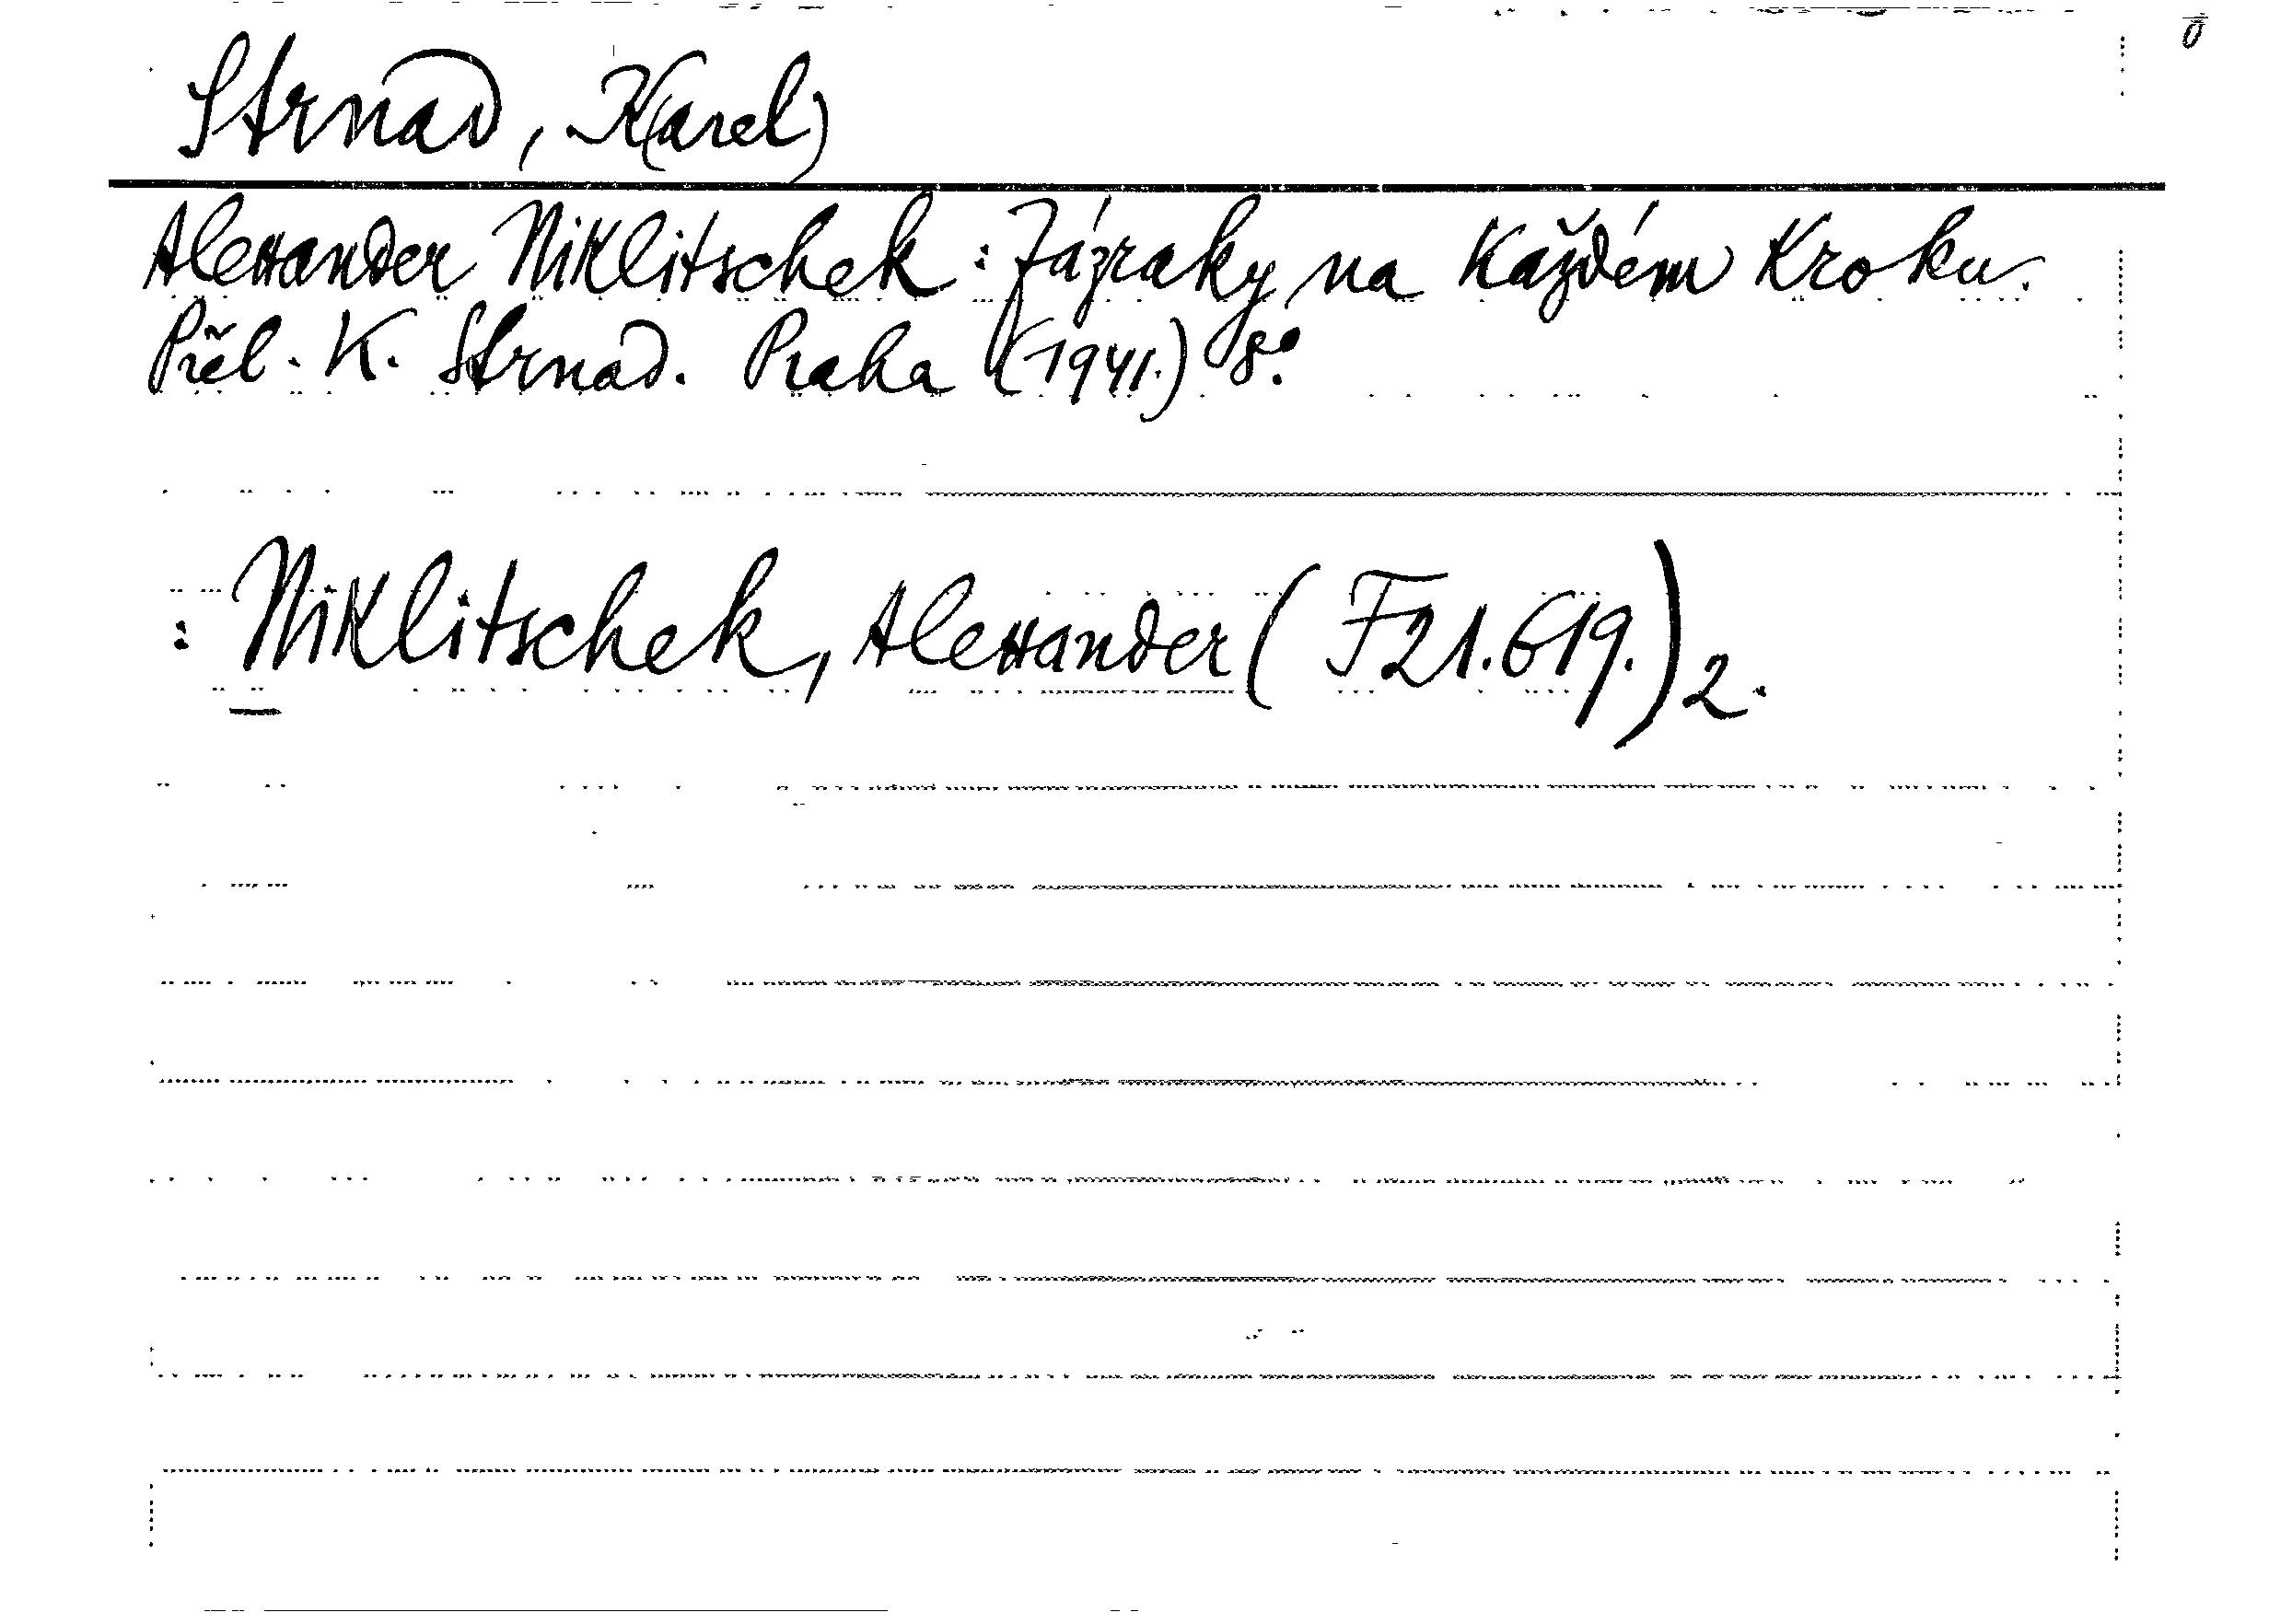 Strnad, K(arel)
Alexander Niklitschek : Zázraky na každém kroku.
Přel. K. Strnad. Praha (1941.) 8°.
: Niklitschek, Alexander ( F21.619.) 2.